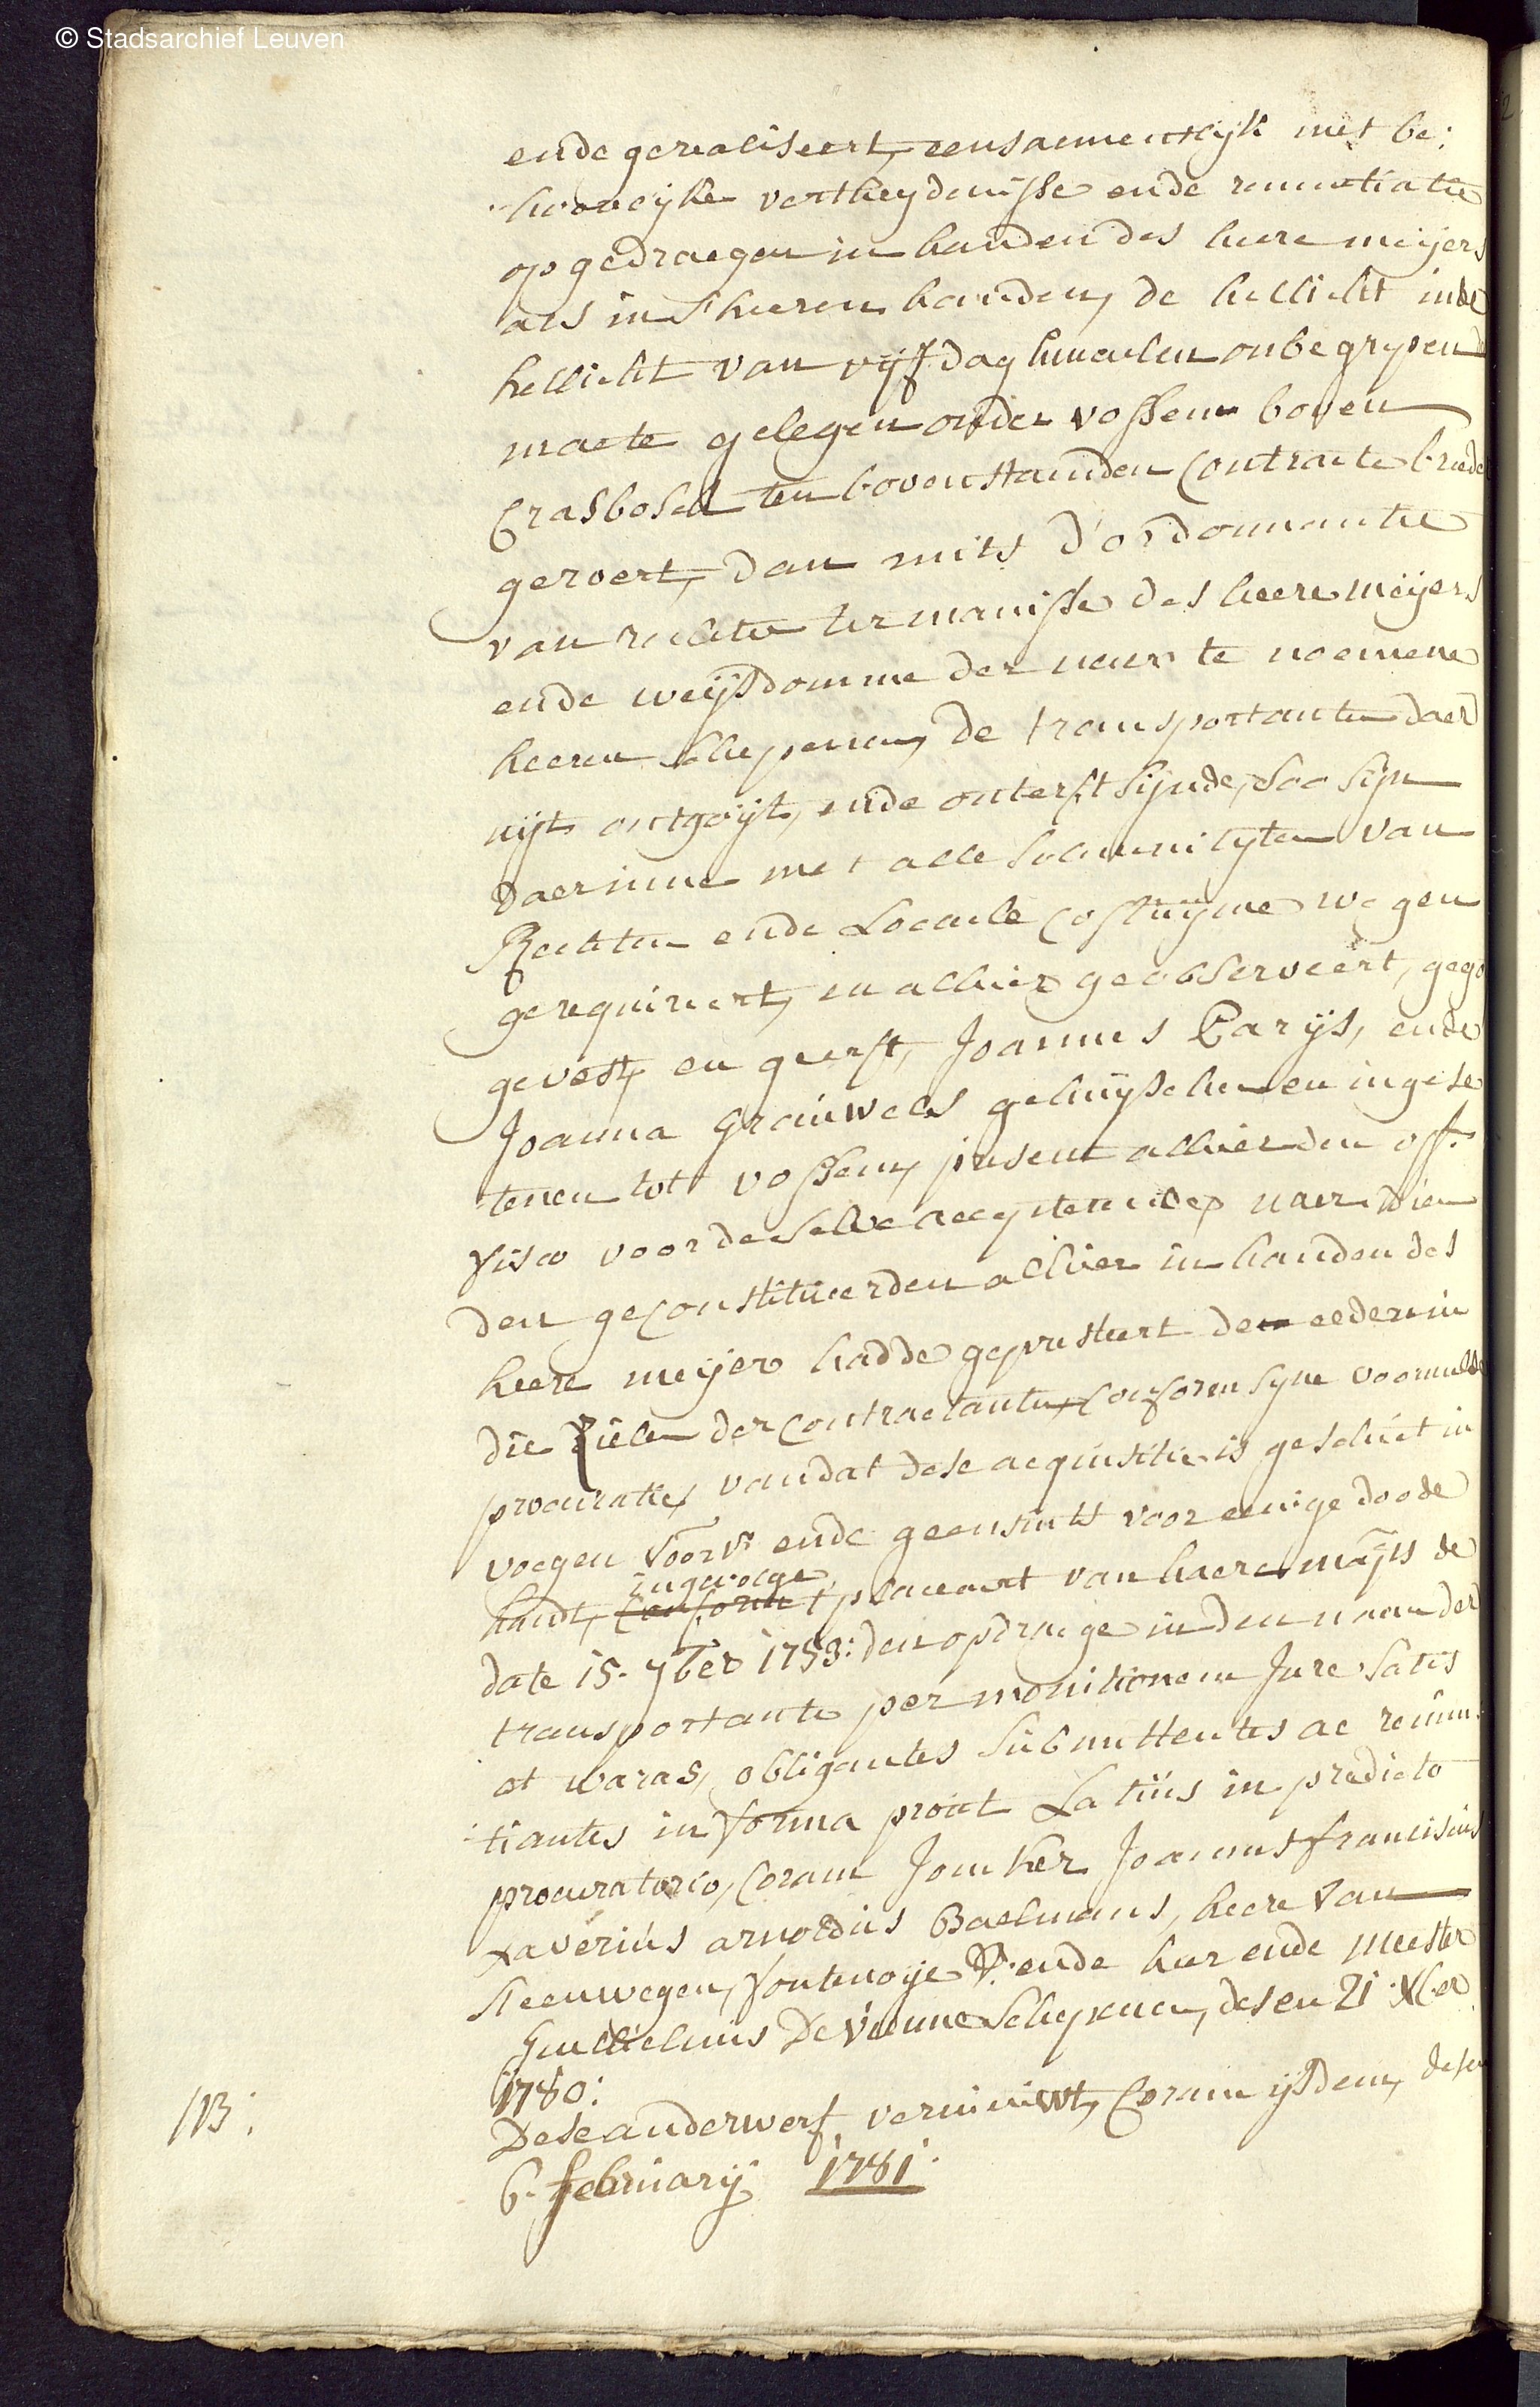 © Stadsarchief Leuven
ende gerealiseert, eensaementlijk met be:
hoorelyke vertheydenisse ende renuntiatie
opgedraegen in handen des heere meijers
als in s'heeren handen, de hellicht inde
hellicht van vijf daghmaelen onbegrypen d
maete gelegen onder vossem boven
Crasbosch ten bovenstaenden Contracte breeder
geroert, dan mits d'ordonnantie
van rechte ter manisse des heere meijers
ende weijsdomme der naer te noemene
heeren schepenen, de transportanten daer
uijt ontgoijt, ende onterft sijnde, soo sijn
daerinne met alle solemnityten van
Rechten ende Locaele Costuijme wegen
gerequireert, en alhier geobserveert, gego
gevest, en geerft, Joannes Parijs, ende
Joanna Grauwels gehuysschen en ingese
tenen tot vossem, present alhier den off.
fisco voor deselve accepterende, naer dien
den geconstitueerden alhier in handen des
heere meijer hadde gepresteert den eede in
die ziele der Contractanten, Conform syne voormelde
procuratie, van dat dese acquisitie is geschiet in
voegen voorsr. ende geensints voor eenige doode
ingevolge
handt, Conform t'placcaert van haere maj'ts de
date 15. 7ber 1753: den opdraege in den naem der
transportante per monitionem Jure satis
et waras, obligantes submittentes ac renun
tiantes in forma prout Latius in predicto
procuratorio, Coram Joncker Joannes franciscus
xaverius arnoldus Baelmans, heere van
steenwegen, fontenoye &. ende heer ende meester
Guillielmus De vienne schepenen, desen 21 Xber
1780:
NB: Dese anderwerf vernieuwt, Coram ijsdem, desen
6. february 1781.